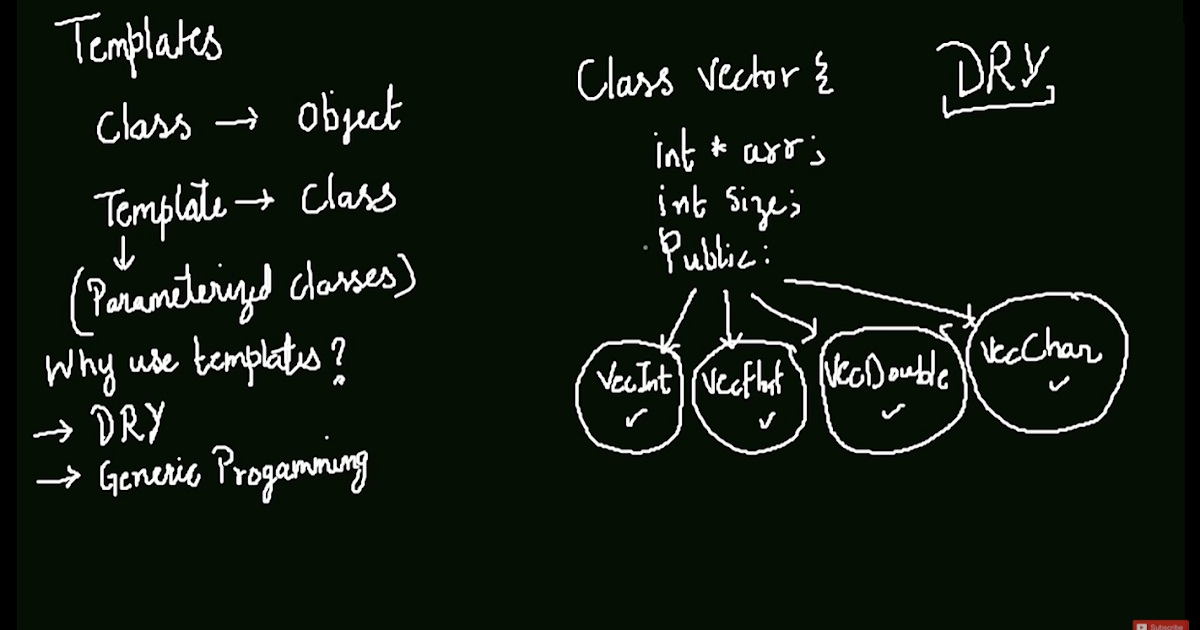 Templates
Class → Object
Template → Class
↓
(Parameterized classes)
Why use templates?
→ DRY
→ Generic Progamming
Class Vector {
DRY
int * arr;
int size;
Public:
VecInt
Vecfloat
VecDouble
VecChar
Subscribe